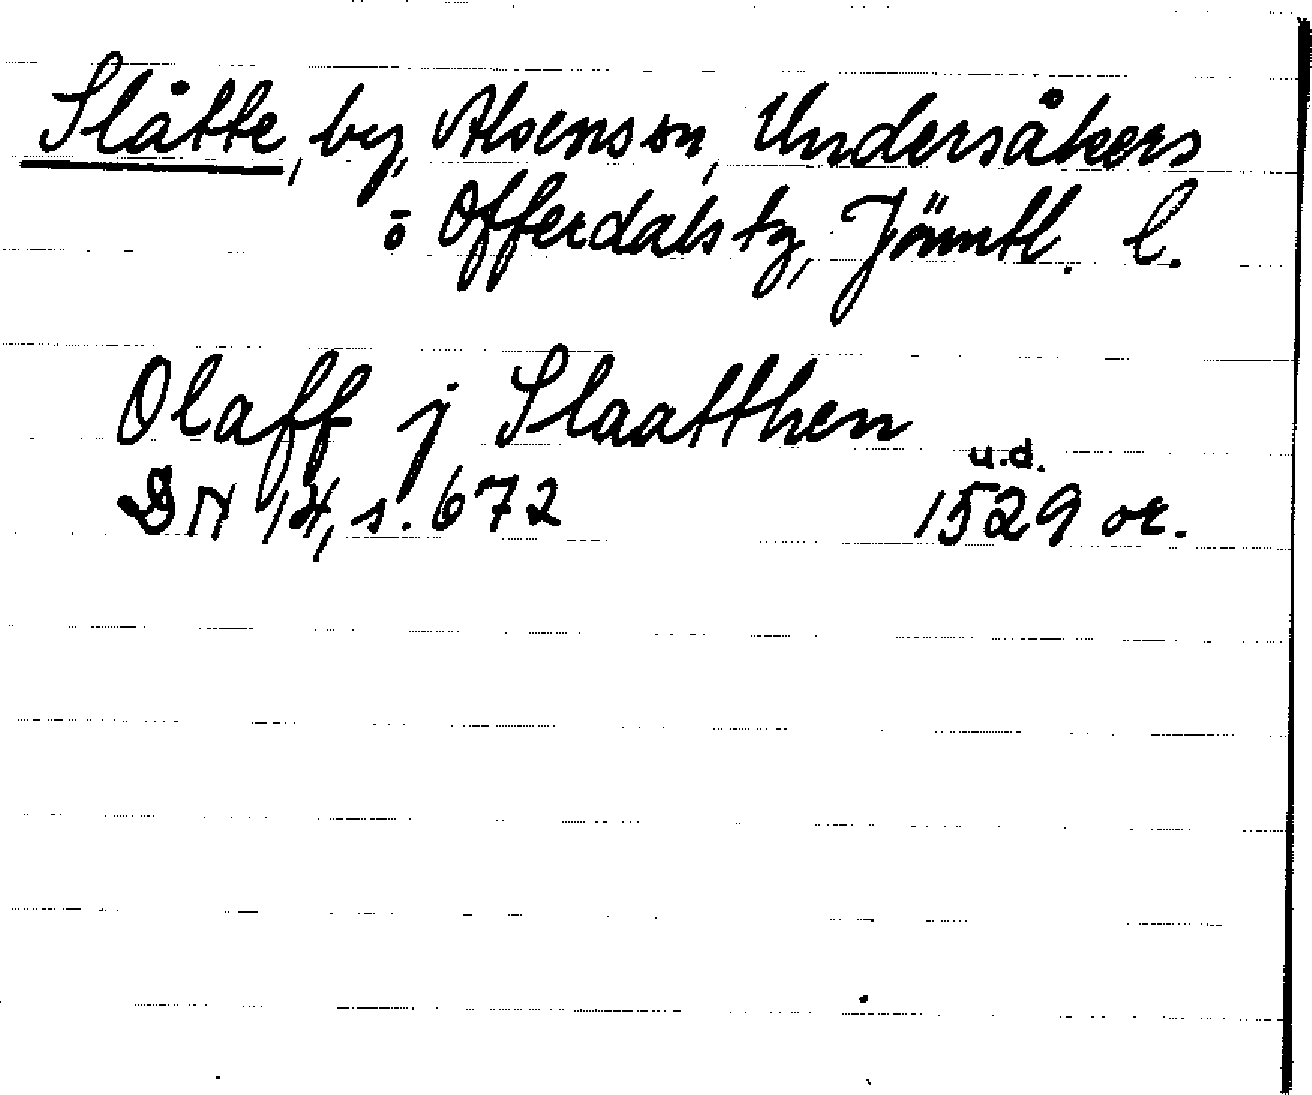 Slåtte, by, Alsens sn, Undersåkers
o Offerdals tg, Jämtl. l.
Olaff j Slaatthen
u.d.
DN 14, s. 672 1529 or.